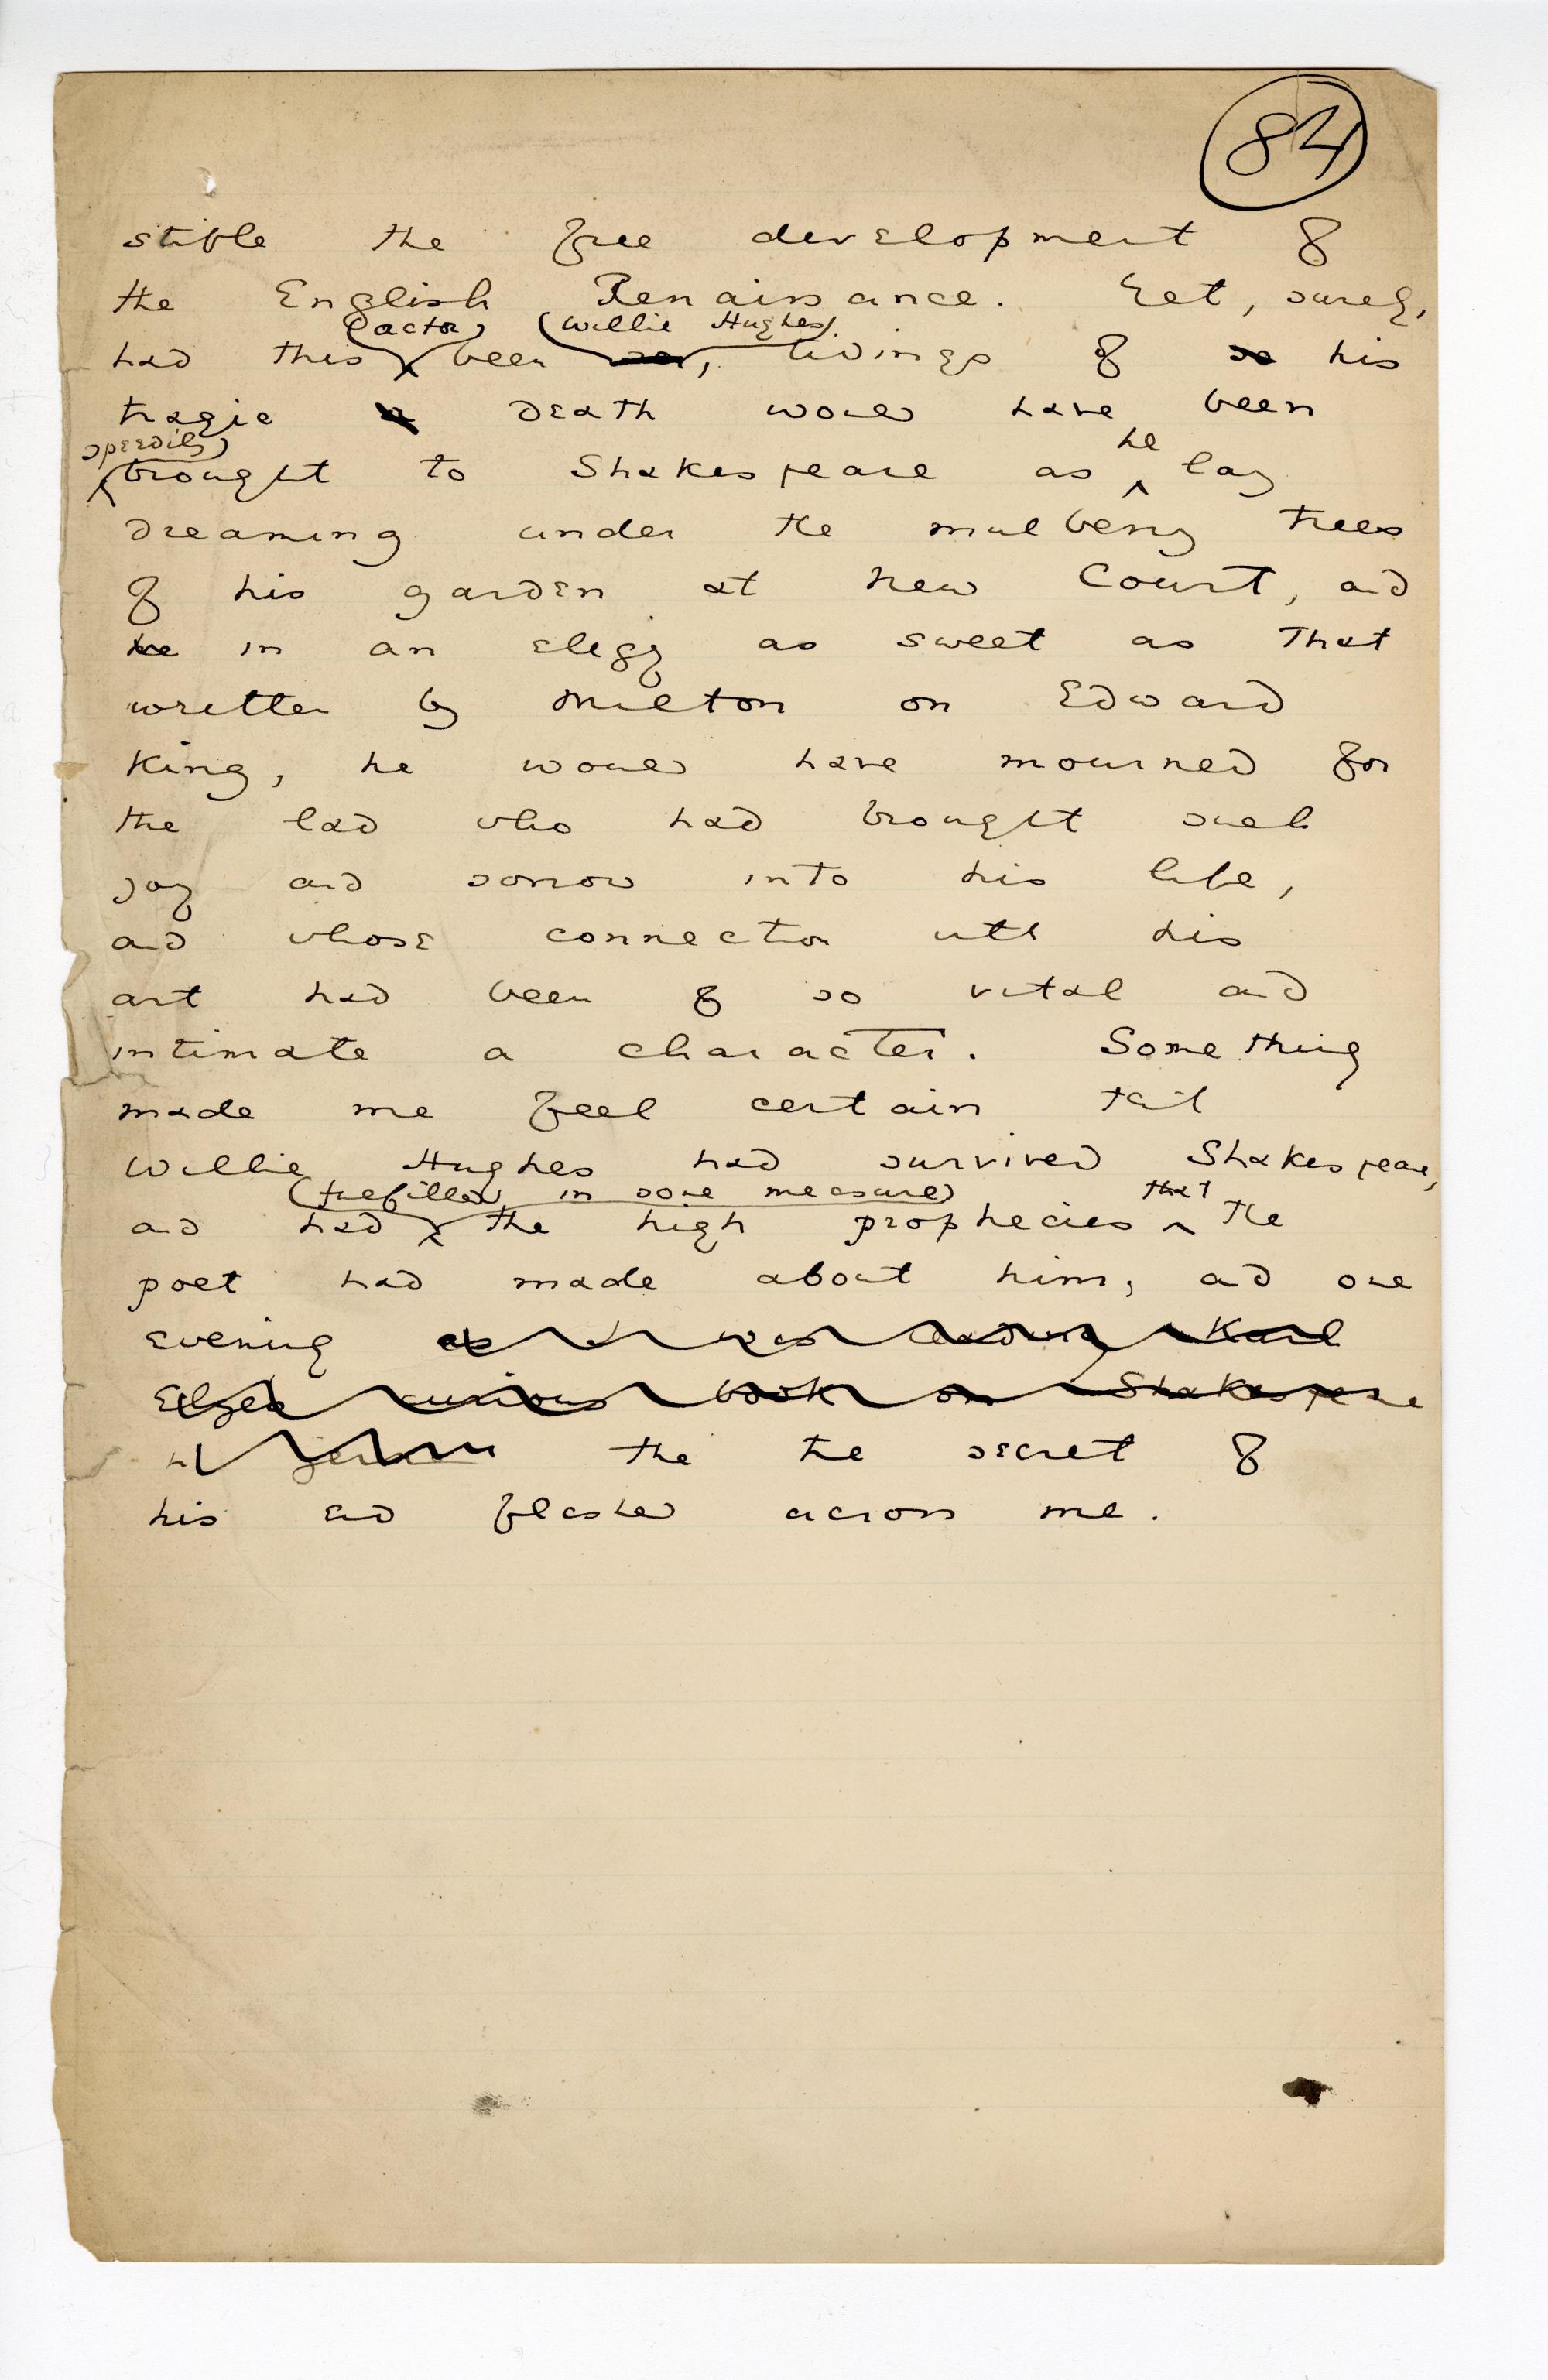 84
stifle the free development of
the English Renaissance. Yet, surely,
(actor) (Willie Hughes)
had this been so, tidings of so his
tragic death would have been
speedily
brought to Shakespeare as he lay
dreaming under the mulberry trees
of his garden at New Court, and
he in an elegy as sweet as that
written by Milton on Edward
King, he would have mourned for
the lad who had brought such
joy and sorrow into his life,
and whose connection with his
art had been of so vital and
intimate a character. Something
made me feel certain that
Willie Hughes had survived Shakespeare,
(fulfilled in some measure) that
and had the high prophecies the
poet had made about him, and one
evening as I was reading Karl
Elze's curious book on Shakespeare
the the secret of
his end flashed across me.